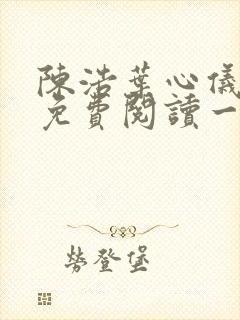 陳浩葉心儀
免費閱讀一
勞登堡